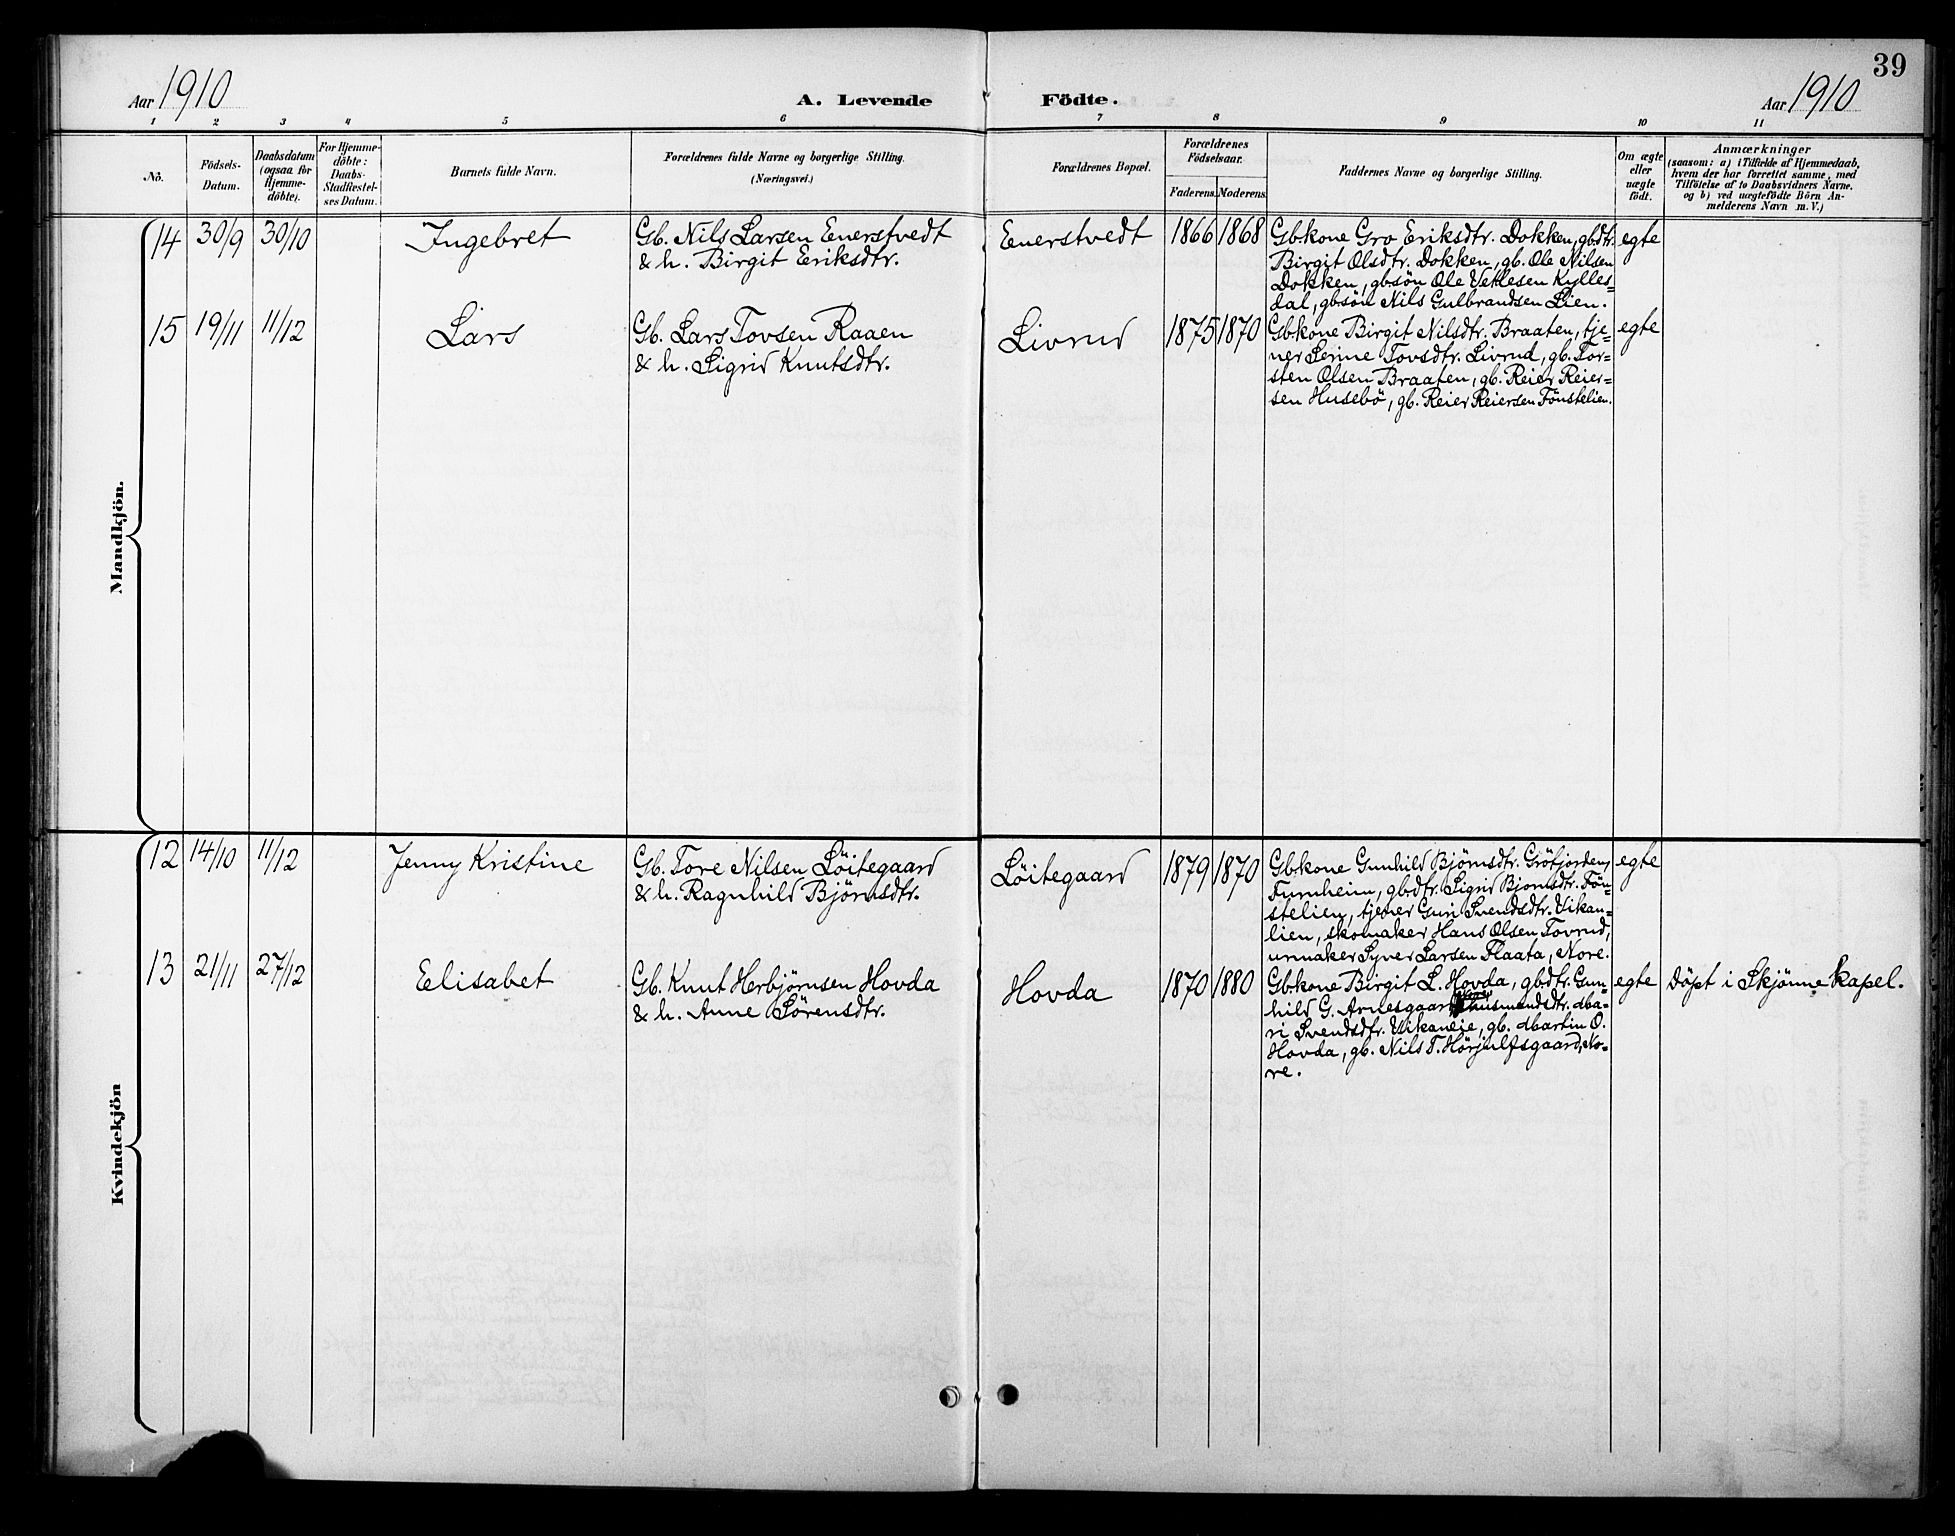 39
Aar 1910
A. Levende Födte.
Aar 1910
1 2 3 4 5 6 7 8 9 10 11
No.
Födsels-
Datum.
Daabsdatum
(ogsaa for
Hjemme-
döbte).
For Hjemme-
döbte:
Daabs-
Stadfæstel-
ses Datum.
Barnets fulde Navn.
Forældrenes fulde Navne og borgerlige Stilling.
(Næringsvei.)
Forældrenes Bopæl.
Forældrenes
Födselsaar.
Faderens. Moderens.
Faddernes Navne og borgerlige Stilling.
Om ægte
eller
uægte
födt.
Anmærkninger
(saasom: a) i Tilfælde af Hjemmedaab,
hvem der har forrettet samme, med
Tilföielse af to Daabsvidners Navne,
og b) ved uægtefödte Börn An-
melderens Navn m. V.)
Mandkjön.
14 30/9 30/10 Ingebret
Gb. Nils Larsen Enerstvedt
& h. Birgit Eriksdtr.
Enerstvedt 1866 1868
Gbkone Gro Eriksdtr. Dokken, gbdtr.
Birgit Olsdtr. Dokken, gb. Ole Nilsen
Dokken, gbsön Ole Vetlesen Kylles=
dal, gbsön Nils Gulbrandsen Lien.
egte
15 19/11 11/12 Lars
Gb. Lars Tovsen Raaen
& h. Sigrid Knutsdtr.
Livrud 1875 1870
Gbkone Birgit Nilsdtr. Braaten, tje=
ner Serine Tovsdtr. Livrud, gb. Tor=
sten Olsen Braaten, gb. Reier Reier=
sen Husebö, gb. Reier Reiersen Fönstelien.
egte
Kvindekjön
12 14/10 11/12 Jenny Kristine
Gb. Tore Nilsen Löitegaard
& h. Ragnhild Björnsdtr.
Löitegaard 1879 1870
Gbkone Gunhild Björnsdtr. Gröfjorden,
Furnheim, gbdtr. Sigrid Bjornsdtr. Fön=
stelien, tjener Guri Svendsdtr. Vikan=
lien, skomaker Hans Olsen Tovrud,
urmaker Syver Larsen Flaata, Nore.
egte
13 21/11 27/12 Elisabet
Gb. Knut Herbjörnsen Hovda
& h. Anne Sörensdtr.
Hovda 1870 1880
Gbkone Birgit L. Hovda, gbdtr. Gun=
hild G. Arnesgaard, Nore, husmandsdtr. Ma=
ri Svendsdtr. Vikaneie, gb. Martin O.
Hovda, gb. Nils T. Hörjulfsgaard, No=
re.
egte
Döpt i Skjönne kapel.